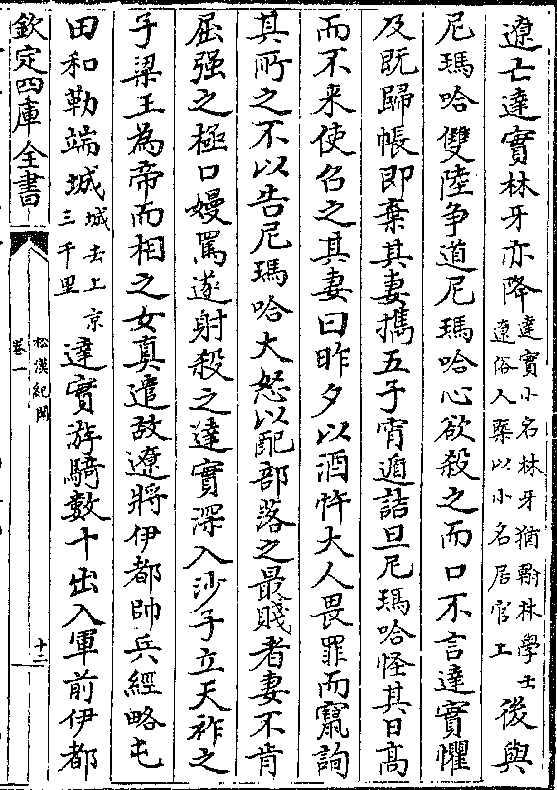 遼亡達實林牙亦降達實小名林牙猶翰林學士遼俗人槩以小名居官上後與
尼瑪哈雙陸争道尼瑪哈心欲殺之而口不言達實懼
及既歸帳即棄其妻攜五子宵遁詰旦尼瑪哈怪其日髙
而不来使召之其妻曰昨夕以酒忤大人畏罪而竄詢
其所之不以告尼瑪哈大怒以配部落之最賤者妻不肯
屈强之極口嫚罵遂射殺之達實深入沙子立天祚之
子梁王為帝而相之女真遣故遼將伊都帥兵經略屯
田和勒端城城去上京三千里達實游騎數十出入軍前伊都
欽定四庫全書
松漠紀聞
卷一
十二